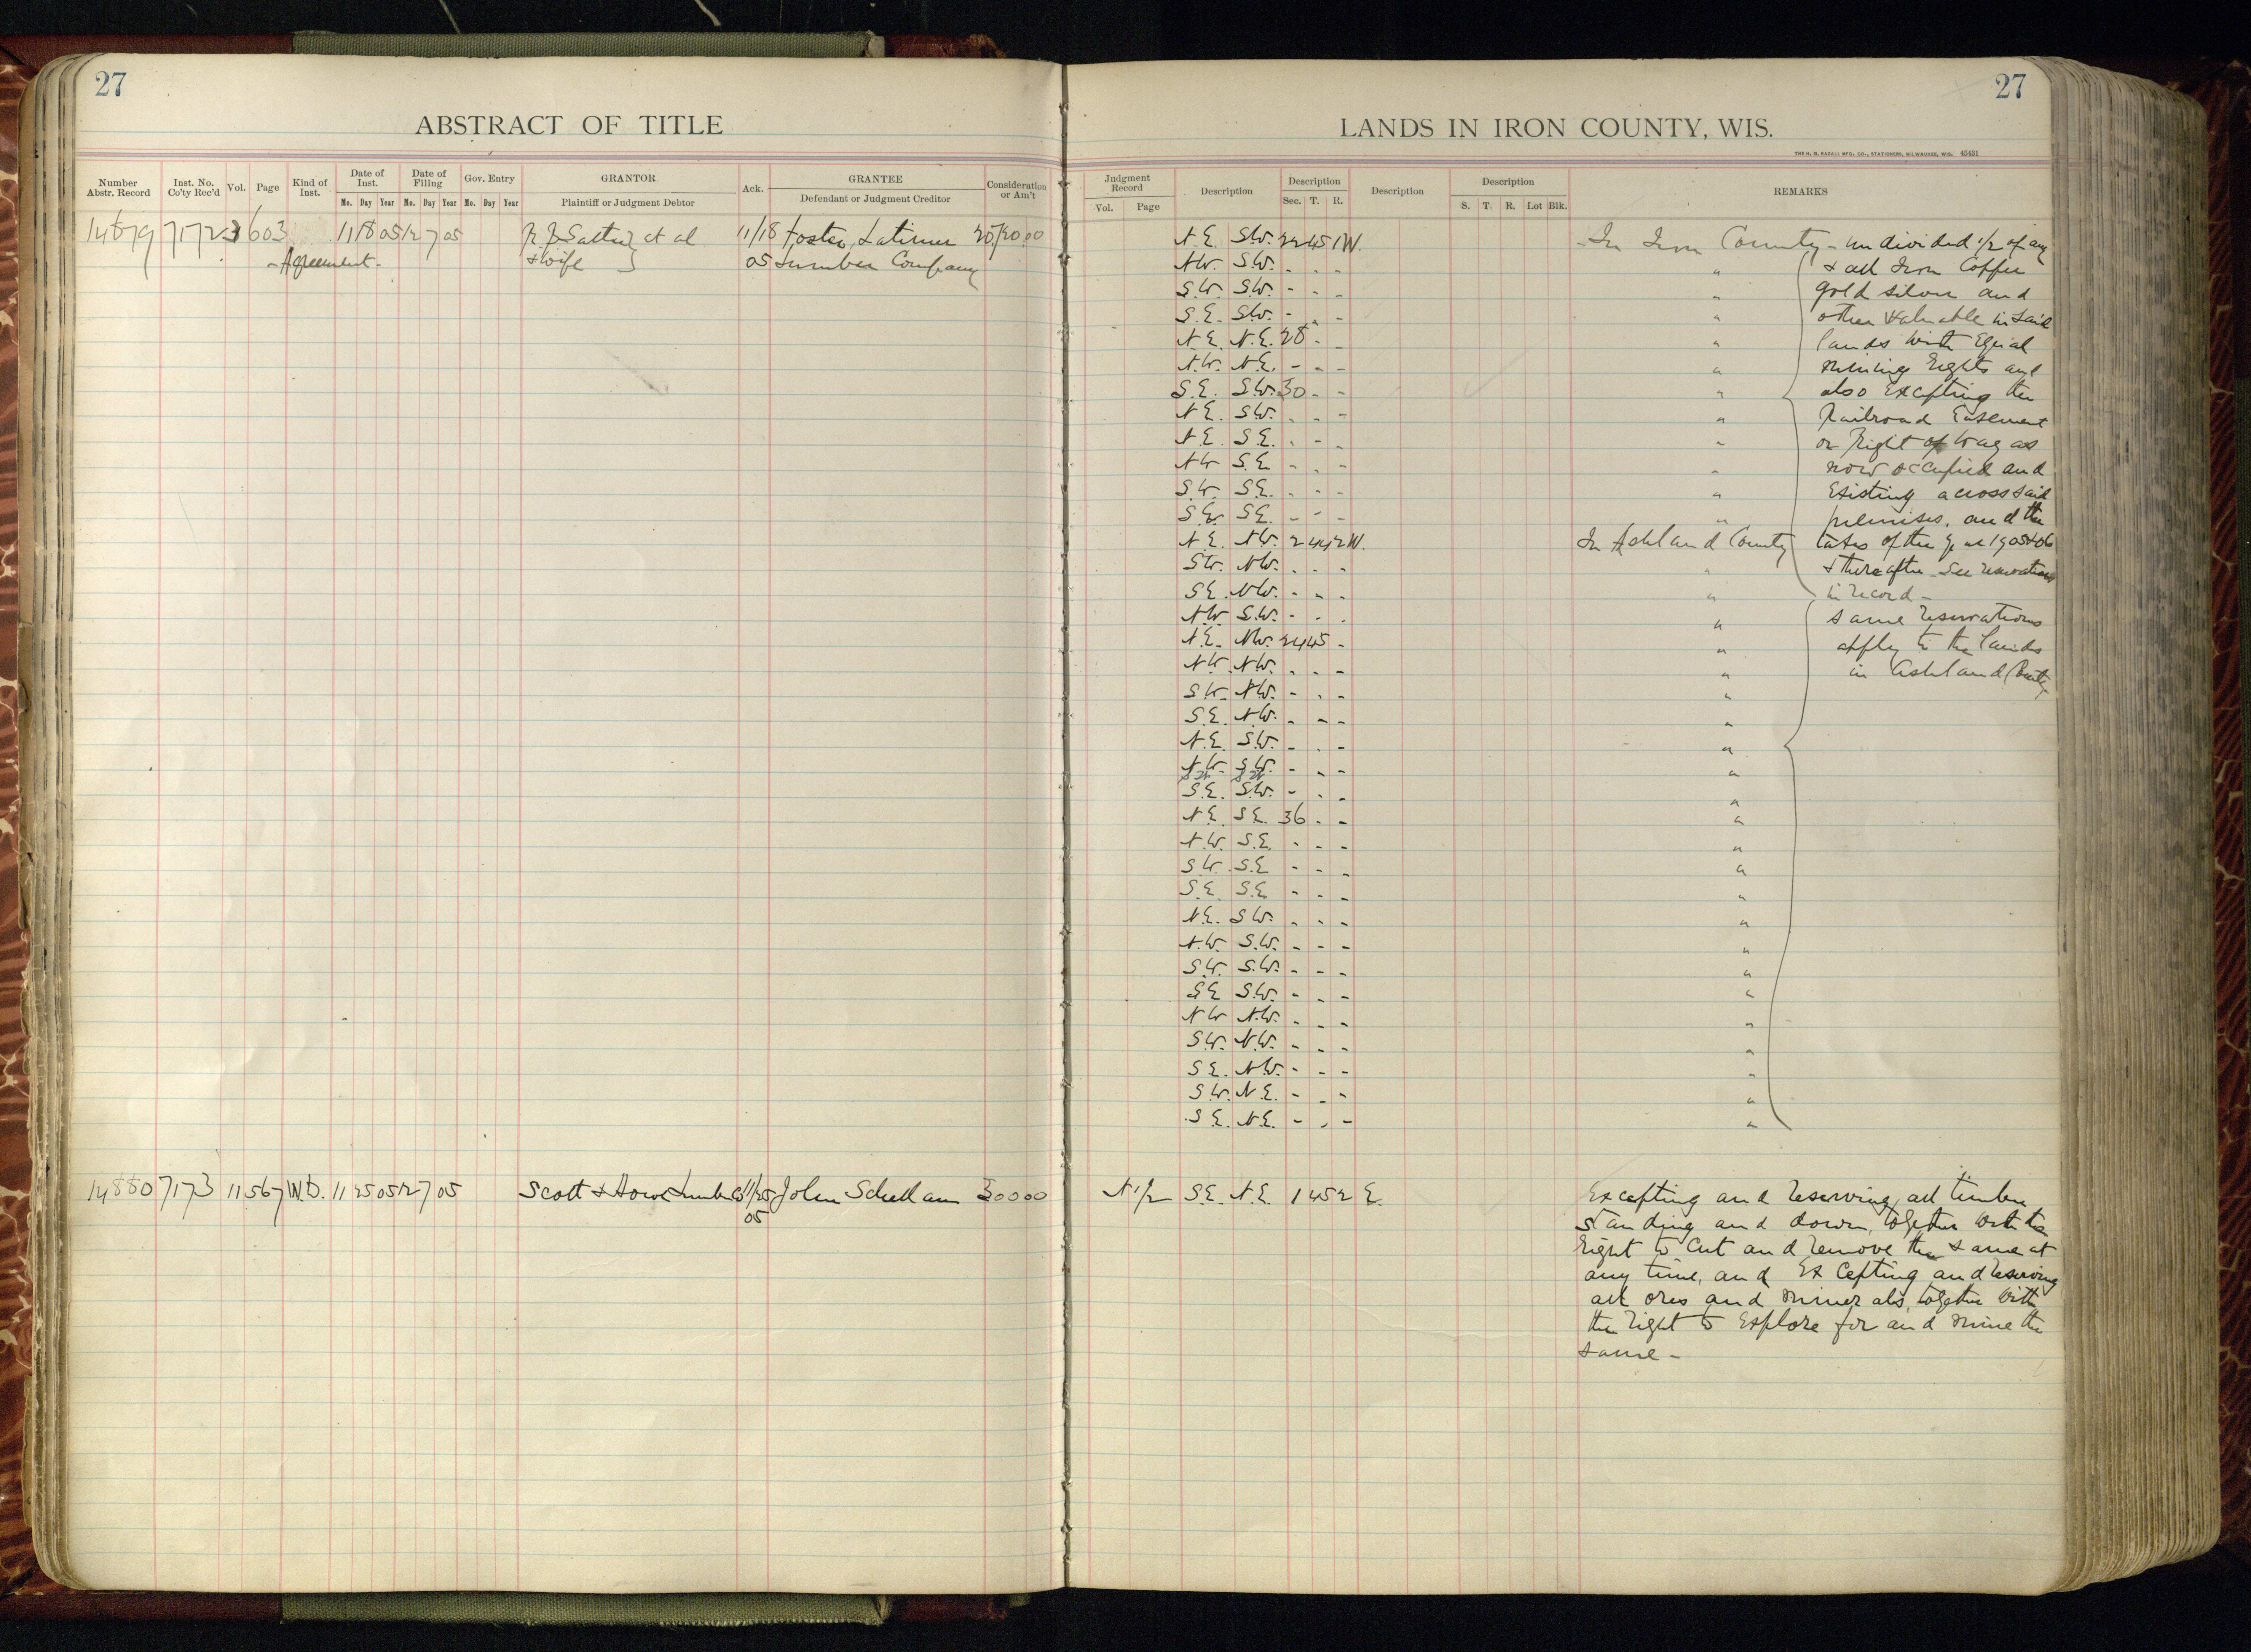 27
ABSTRACT OF TITLE
Number Abstr. Record Inst. No. Co'ty Rec'd Vol. Page Kind of Inst. Date of Inst. Mo. Day Year Date of Filing Mo. Day Year Gov. Entry Mo. Day Year GRANTOR Plaintiff or Judgment Debtor Ack. GRANTEE Defendant or Judgment Creditor Consideration or Am't
14879 7172 3 603 11 18 05 12 7 05 et al 11/18 Foster, Latimer
- Agreement - & Wife 05 Lumber Company
14880 7173 11 567 W.D. 11 25 05 12 7 05 Scott & Howe Lumber Co 11/25 John 300 00
05
27
LANDS IN IRON COUNTY, WIS.
THE H. G. RAZALL MFG. CO., STATIONERS, MILWAUKEE, WIS. 45431
Judgment Record Vol. Page Description Description Sec. T. R. Description Description S. T. R. Lot Blk. REMARKS
N.E. S.W. 22 45 1 W. In Iron County - undivided 1/2 of any
N.W. S.W. - - - " & all Iron Copper
S.W. S.W. - - - " gold silver and
S.E. S.W. - - - " other valuable in said
N.E. N.E. 28 - - " lands with Equal
N.W. N.E. - - - " mining Rights and
S.E. S.W. 30 - - " also Excepting the
N.E. S.W. - - - " Railroad Easement
N.E. S.E. - - - " or Right of Way as
N.W. S.E. - - - " now occupied and
S.W. S.E. - - - " Existing across said
S.E. S.E. - - - " premises, and the
N.E. N.W. 2 44 2 W. In Ashland County taxes of the year 1905 & 06
S.W. N.W. - - - " & thereafter - See reservations
S.E. N.W. - - - " in record -
N.W. S.W. - - - " Same reservations
N.E. N.W. 24 45 - " apply to the lands
N.W. N.W. - - - " in Ashland County
S.W. N.W. - - - "
S.E. N.W. - - - "
N.E. S.W. - - - "
N.W. S.W. - - - "
S.W. S.W.
S.E. S.W. - - - "
N.E. S.E. 36 - - "
N.W. S.E. - - - "
S.W. S.E. - - - "
S.E. S.E. - - - "
N.E. S.W. - - - "
N.W. S.W. - - - "
S.W. S.W. - - - "
S.E. S.W. - - - "
N.W. N.W. - - - "
S.W. N.W. - - - "
S.E. N.W. - - - "
S.W. N.E. - - - "
S.E. N.E. - - - "
N 1/2 S.E. N.E. 1 45 2 E. Excepting and reserving all timber
standing and down, together with the
right to cut and remove the same at
any time, and Excepting and reserving
all ores and minerals, together with
the right to Explore for and mine the
same -